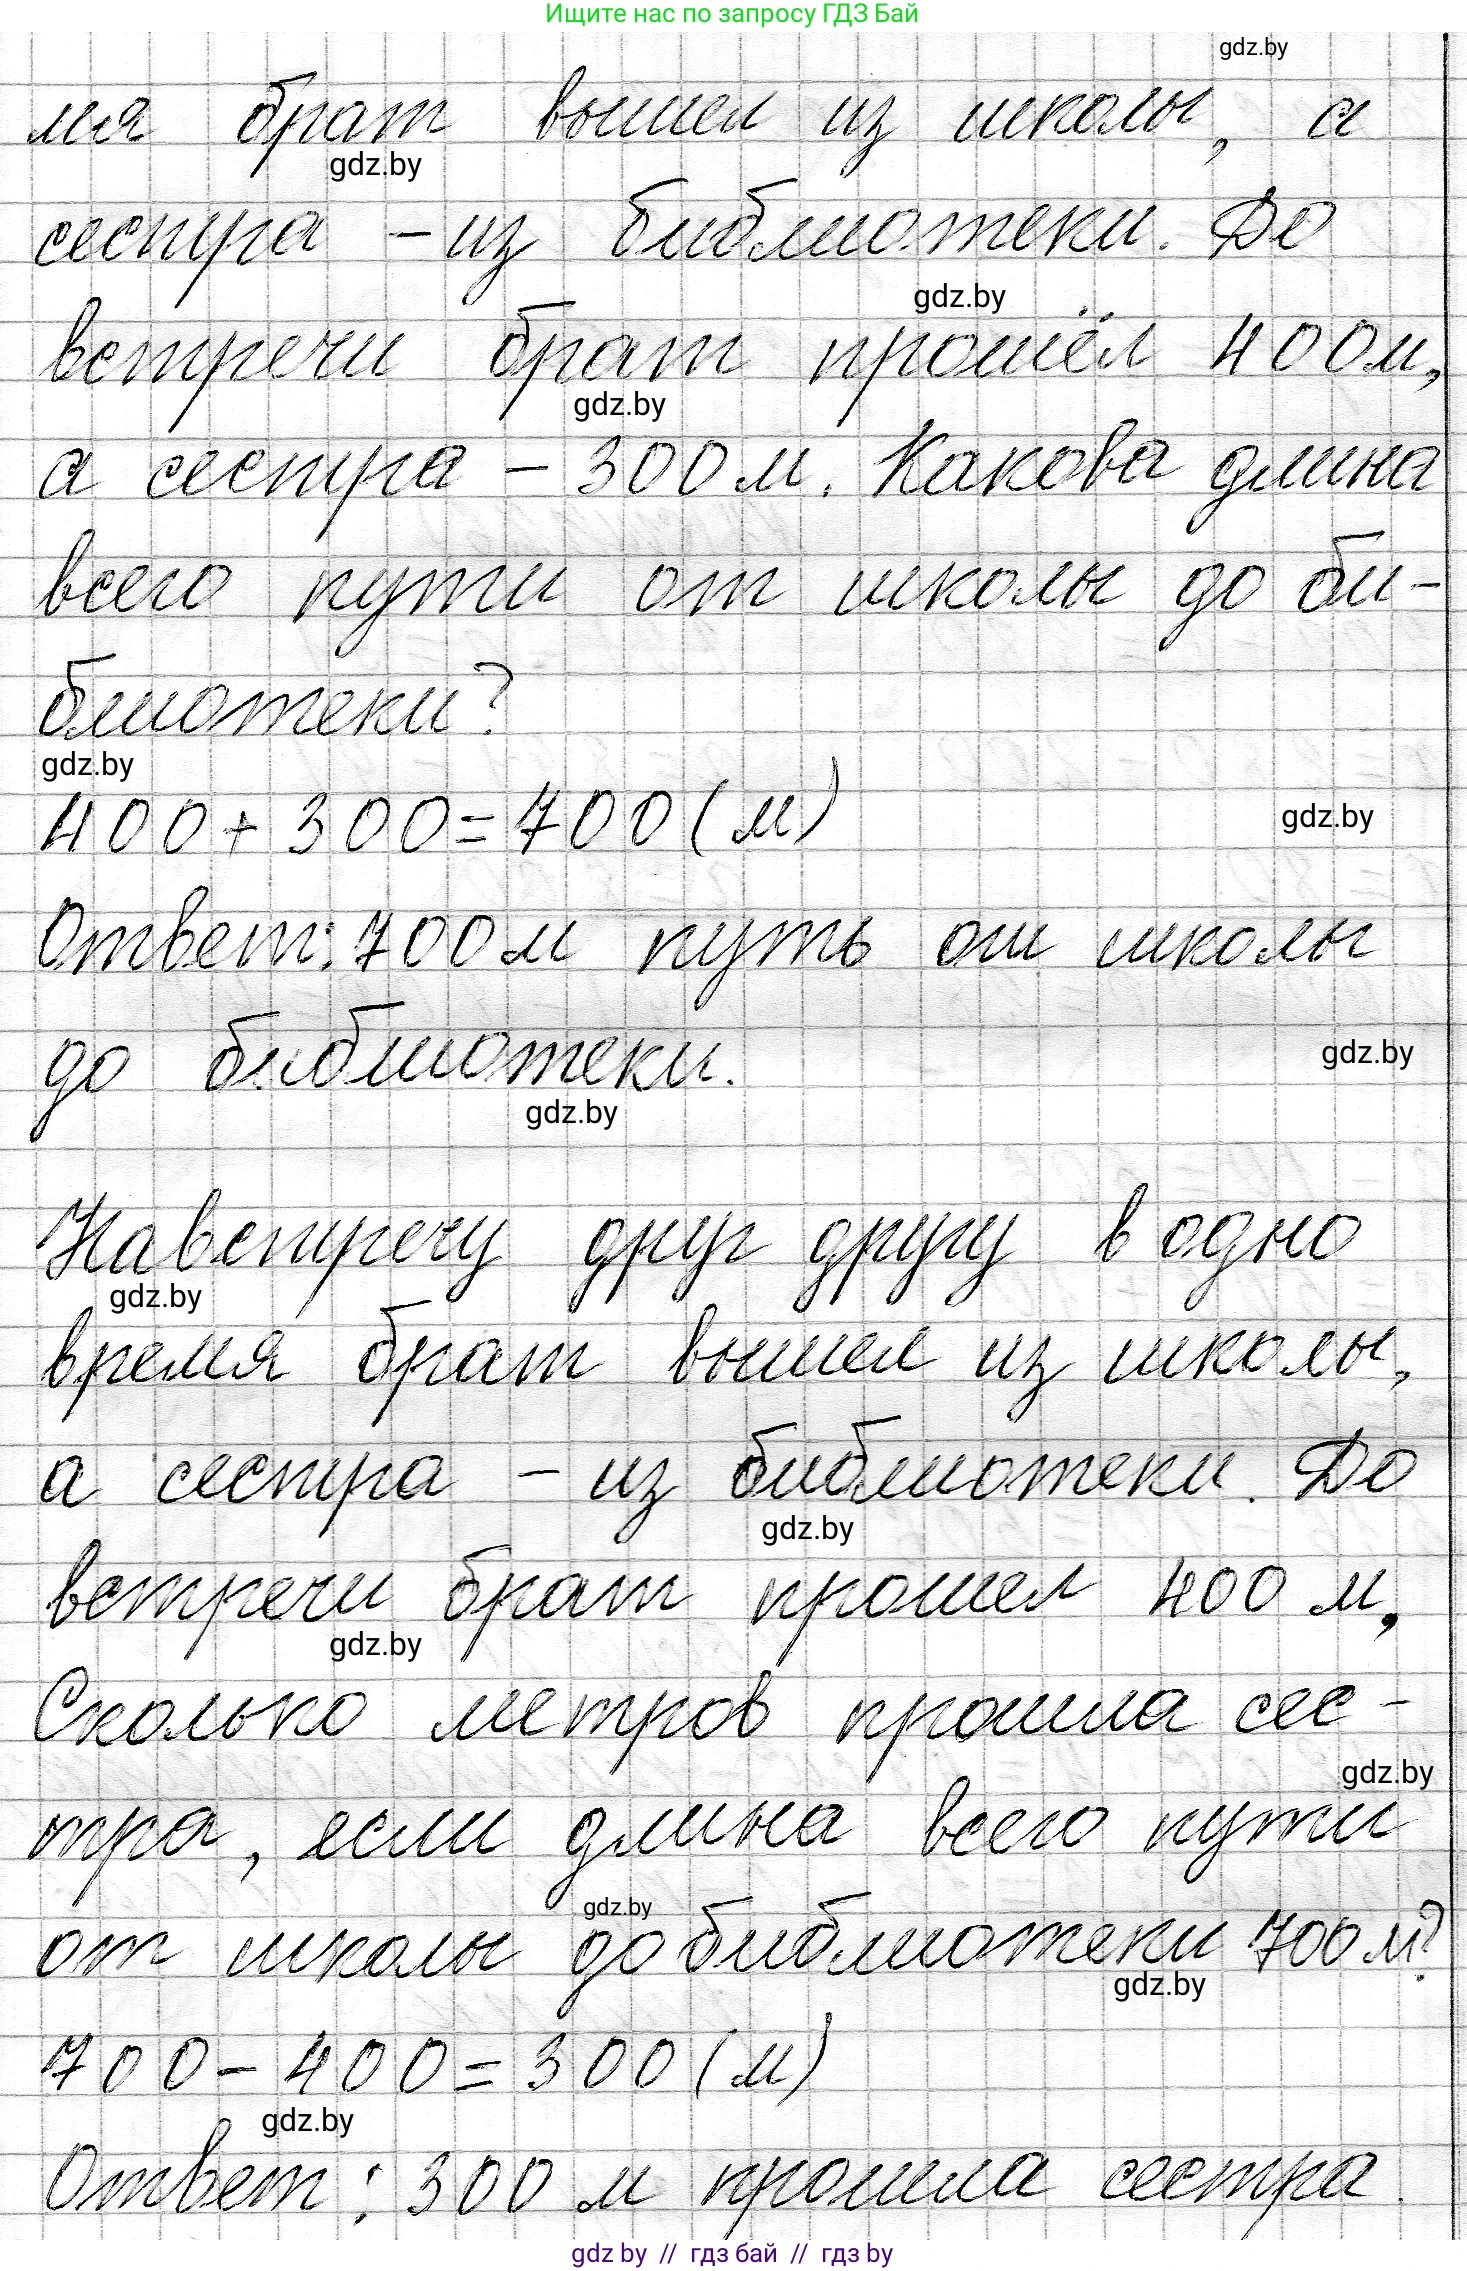 Ищите нас по запросу ГДЗ Бай
gdz.by
мя брат вышел из школы, а
gdz.by
сестра – из библиотеки. До
gdz.by
встречи брат прошёл 400м,
gdz.by
а сестра – 300м. Какова длина
всего пути от школы до би-
блиотеки?
gdz.by
400+300=700(м)
gdz.by
Ответ: 700м путь от школы
до библиотеки.
gdz.by
gdz.by
Навстречу друг другу в одно
gdz.by
время брат вышел из школы,
а сестра – из библиотеки. До
gdz.by
встречи брат прошел 400 м,
gdz.by
Сколько метров прошла сес-
gdz.by
тра, если длина всего пути
gdz.by
от школы до библиотеки 700м?
gdz.by
700-400=300(м)
gdz.by
Ответ: 300 м прошла сестра.
gdz by // гдз бай // гдз by